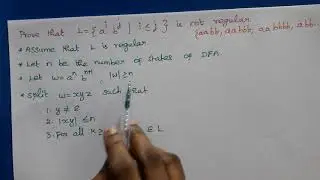 Prove that L = { aⁱ bʲ | i ≤ j } is not regular
{aabb, aabbb, aabbbb, abb..
* Assume that L is regular
* Let n be the number of states of DFA.
* Let w = aⁿ bⁿ⁺¹ , |w| ≥ n
* Split w = xyz such that
1. y ≠ ε
2. |xy| ≤ n
3. For all k ≥ ∈ L